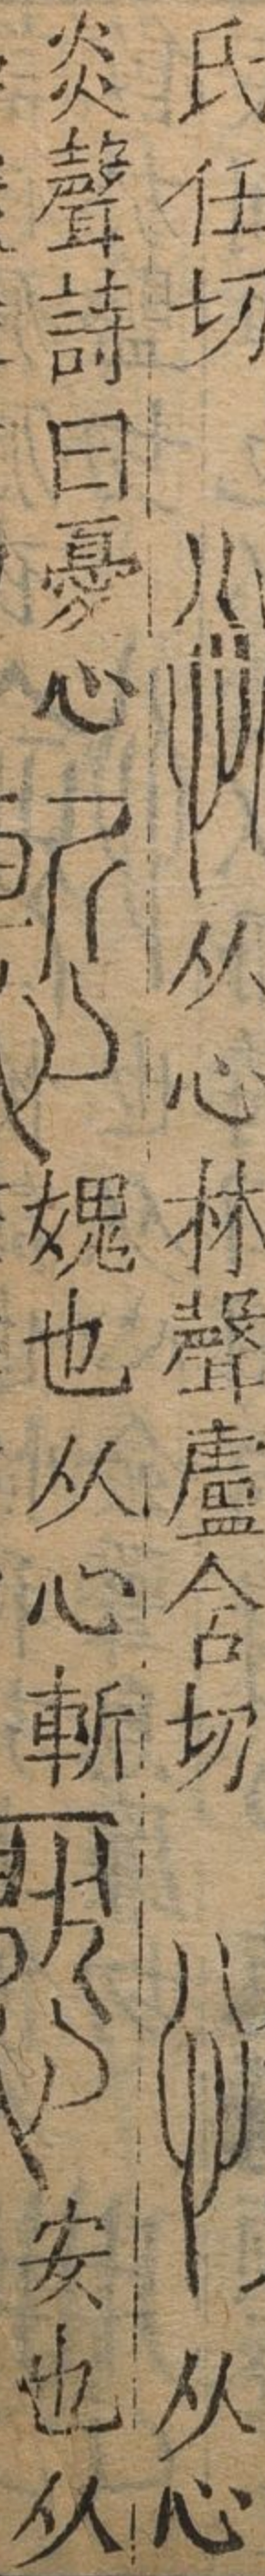 氏任切 从心林聲盧含切 从心
炎聲詩曰憂心 媿也从心斬 安也从